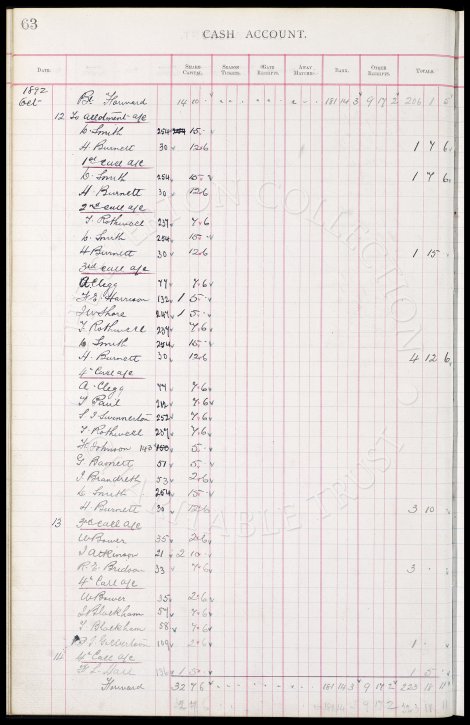 63
CASH ACCOUNT.
DATE. SHARE CAPITAL. SEASON TICKETS. GATE RECEIPTS. AWAY MATCHES. BANK. OTHER RECEIPTS. TOTALS.
1892
Oct Bt Forward 14 10 181 14 3 9 17 2 206 1 5
12 To allotment a/c
D. Smith 254 15
H Burnett 30 12 6 1 7 6
1st Call a/c
D. Smith 254 15 1 7 6
H Burnett 30 12 6
2nd Call a/c
T. Rothwell 237 7 6
D. Smith 254 15
H Burnett 30 12 6 1 15
3rd Call a/c
A Clegg 44 7 6
F. E. Harrison 132 1 5
J W Shore 247 1 5
T. Rothwell 237 7 6
D. Smith 254 15
H. Burnett 30 12 6 4 12 6
4th Call a/c
A. Clegg 44 7 6
T Paul 7 6
S J Swinnerton 252 7 6
T. Rothwell 237 7 6
H Johnson 143 5
G Barnett 51 5
J Brandreth 53 2 6
D Smith 254 15
H Burnett 30 12 6 3 10
13 3rd Call a/c
W Bower 35 2 6
J Atkinson 21 2 10
R. E. 33 7 6 3
4th Call a/c
W Bower 35 2 6
Blackham 57 7 6
T Blackham 58 7 6
2 6 1
14 4th Call a/c
136 1 5 1 5
Forward 32 7 6 181 14 3 9 17 2 223 18 11
COLLECTION
CHARITABLE TRUST